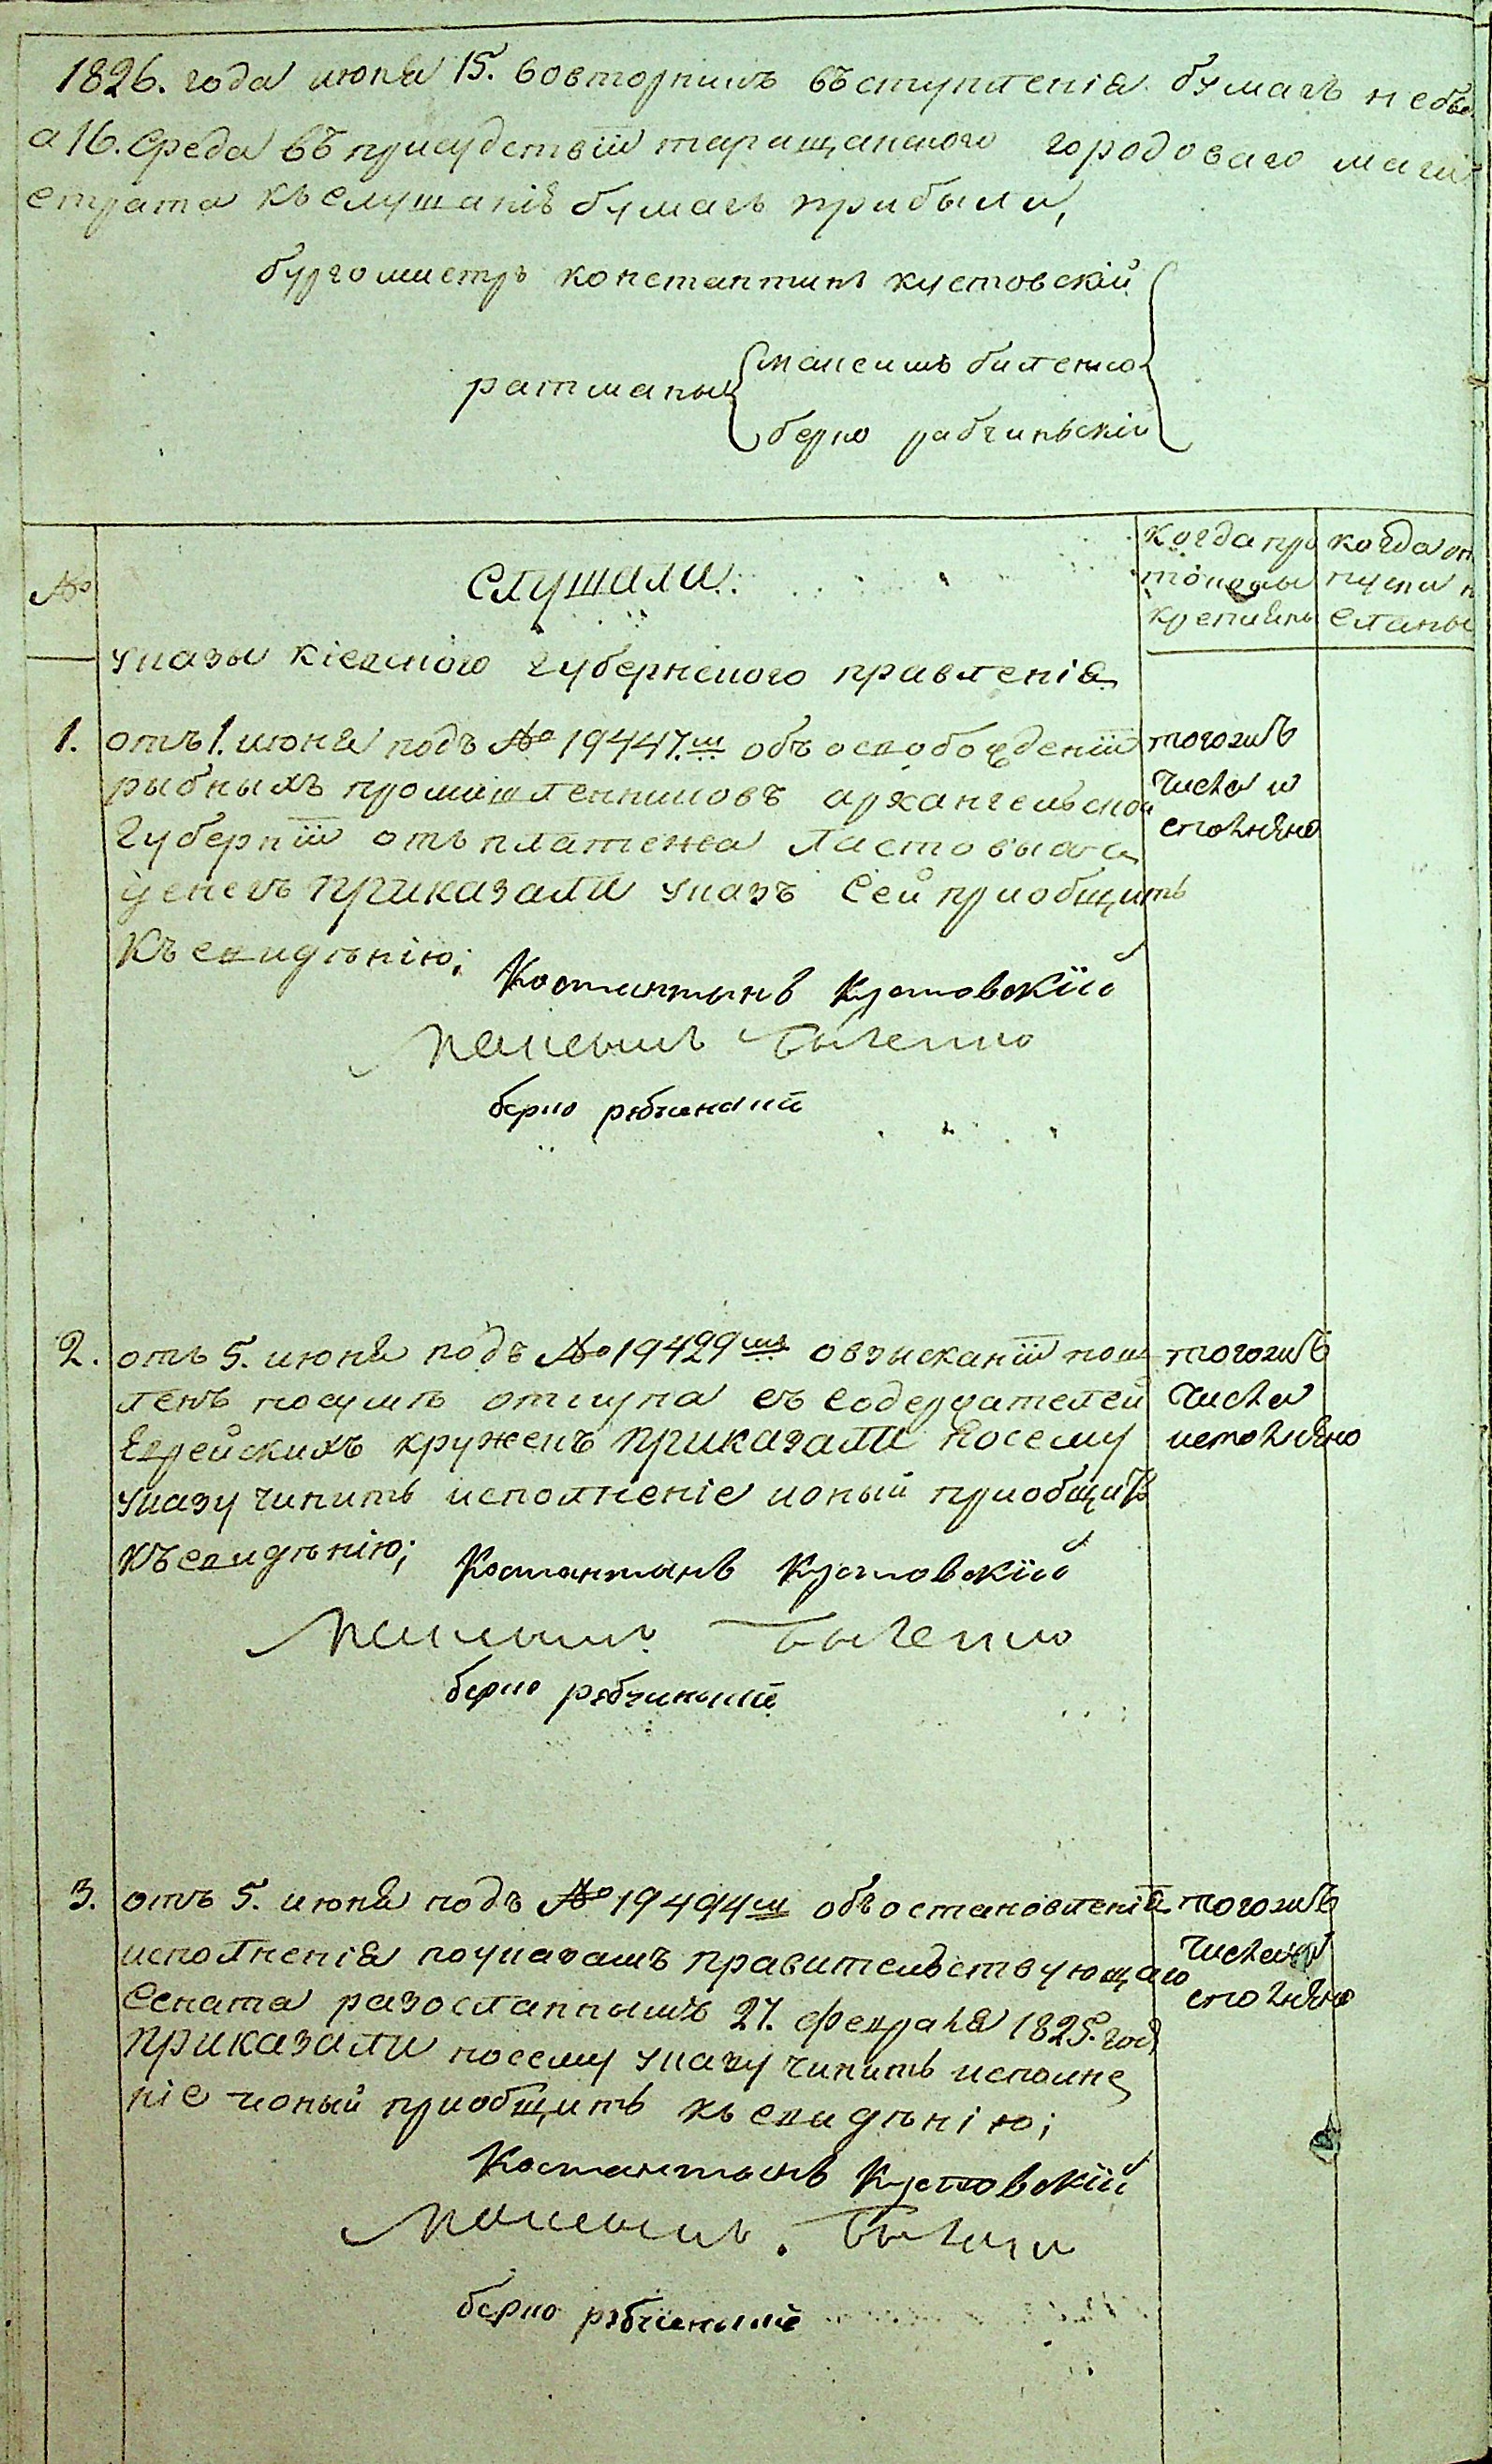 1826. года июня 15. вовторникъ въступленія бумагъ небы
а 16. Среда въ присудствіи таращанского городоваго маги
страта къ слушанію бумагъ прибыли,
бургомистръ константинъ кустовскій
ратманы
максимъ биленко
берко рабчинскій
№
Слушали:
когда про
токолы
крепляны
когда от
пуски
сланы
указы кіевского губернского правленія
1. отъ 1. июня подъ № 19447.м объ освобожденіи
рыбныхъ промишленниковъ архангельской
губерніи отъ платежа ластовыхъ
денегъ приказали указъ Сей приобщить
къ свидѣнію;
того жъ
числа и
сполнено
Костантынъ Кустовскій
Максымъ Быленко
берко рабчинский
2. отъ 5. июня подъ № 19429мъ овзысканіи пош
ленъ посумѣ откупа съ содержателей
Еврейскихъ кружекъ приказали Посему
указу чинить исполненіе ионый приобщить
къ свидѣнію;
того жъ
числа
исполнено
Костантынъ Кустовскій
Максымъ Быленко
берко рабчинский
3. отъ 5. июня подъ № 19494м объ остановленіи
исполненія поуказамъ правительствующаго
Сената разосланнымъ 27. февраля 1825. года
приказали посему указу чинить исполне
ніе ионый приобщить къ свидѣнію;
того жъ
числа и
сполнено
Костантынъ Кустовскій
Максымъ. Быленко
берко рабчинский